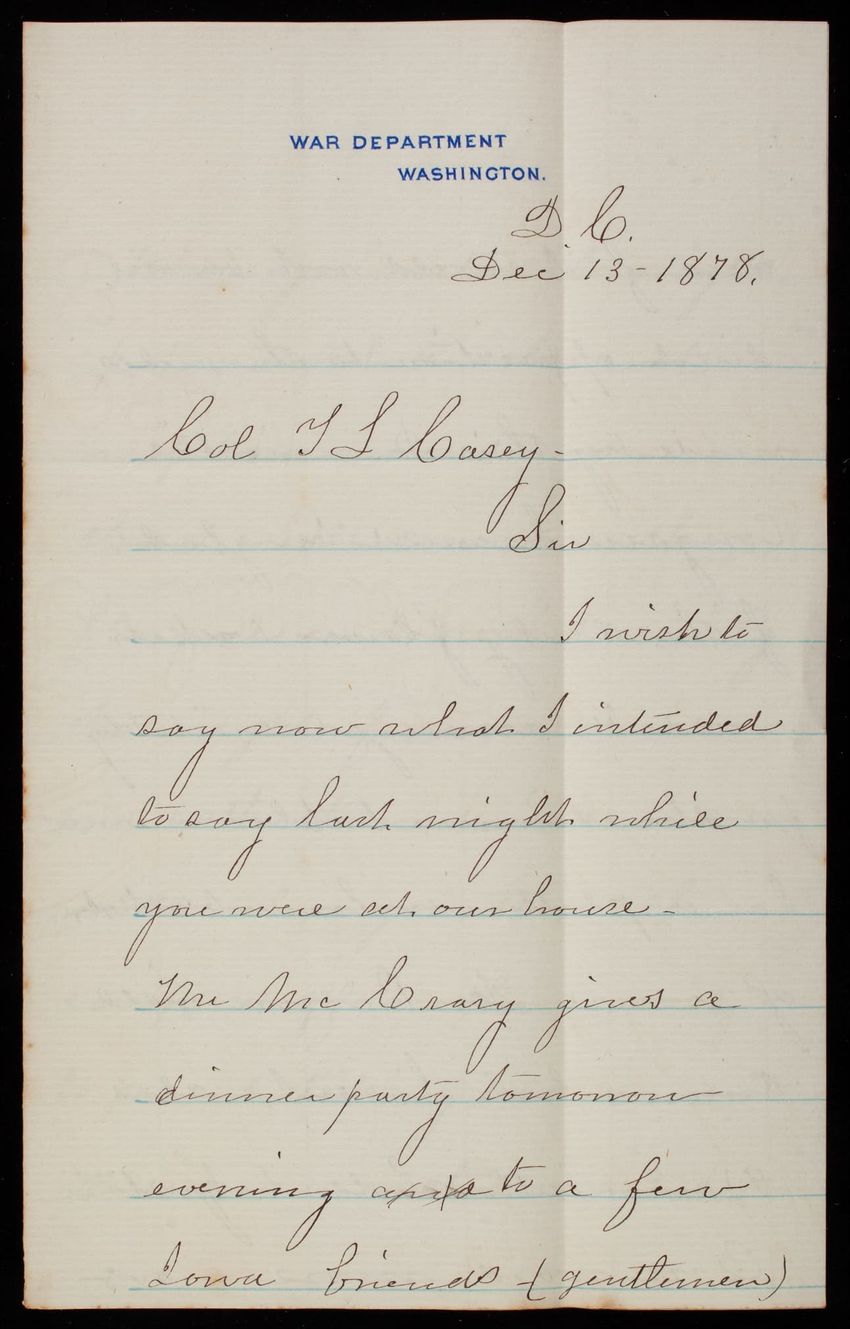 WAR DEPARTMENT
WASHINGTON.
D. C.
Dec 13 - 1878.
Col T L Casey -
Sir
I wish to
say now what I intended
to say last night while
you were at our house -
Mr Mc Crary gives a
dinner party tomorrow
evening to a few
Iowa friends - (gentlemen)